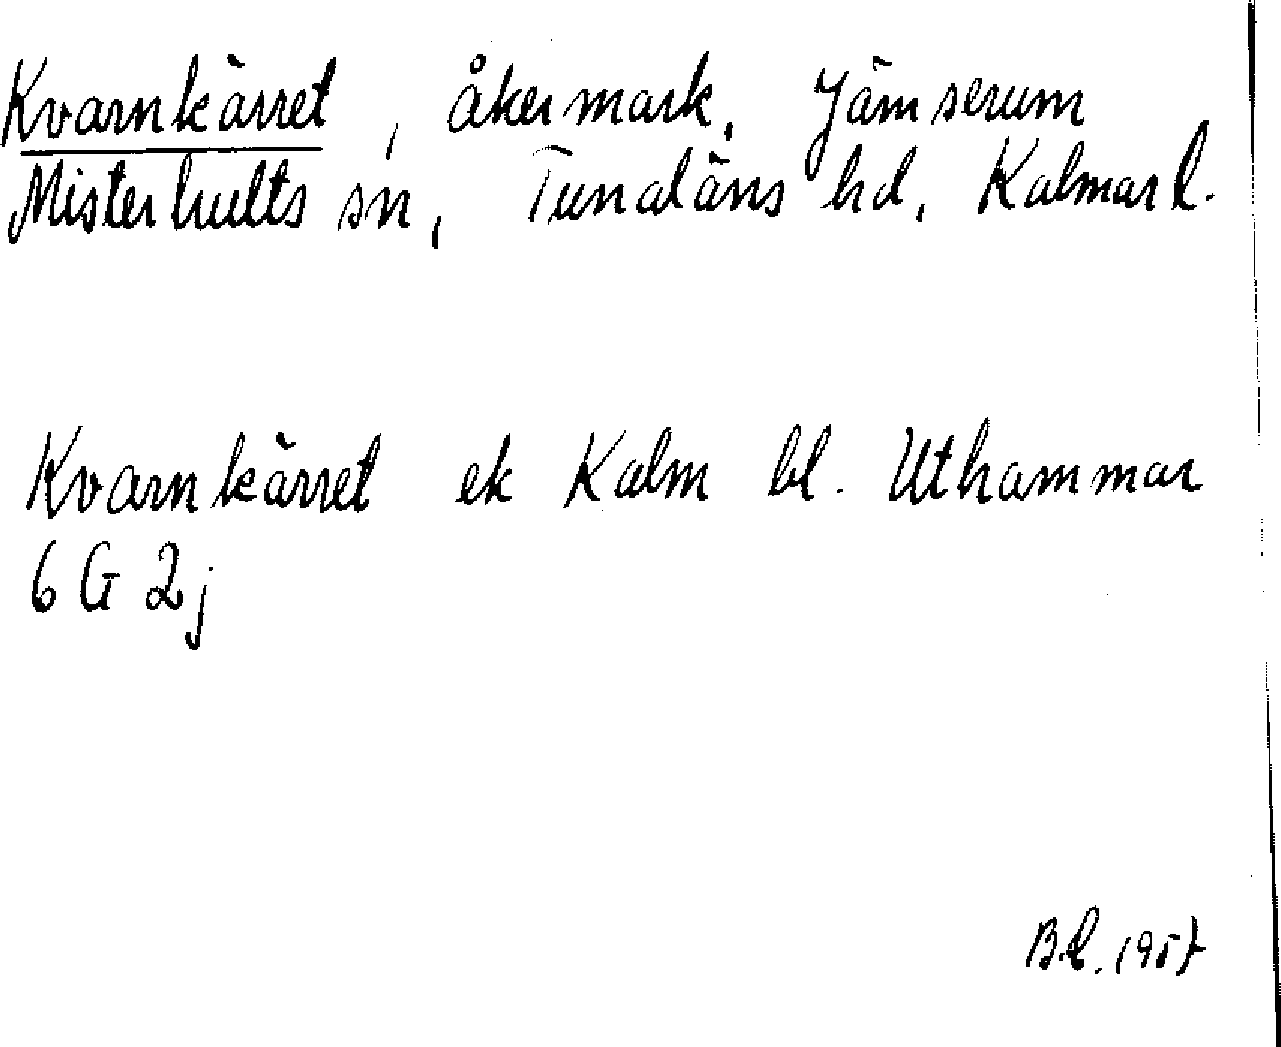 Kvarnkärret, åkermark, Jämserum
Misterhults sn, Tunaläns hd, Kalmar l.
Kvarnkärret ek Kalm bl. Uthammar
6 G 2j
B.L. 1957